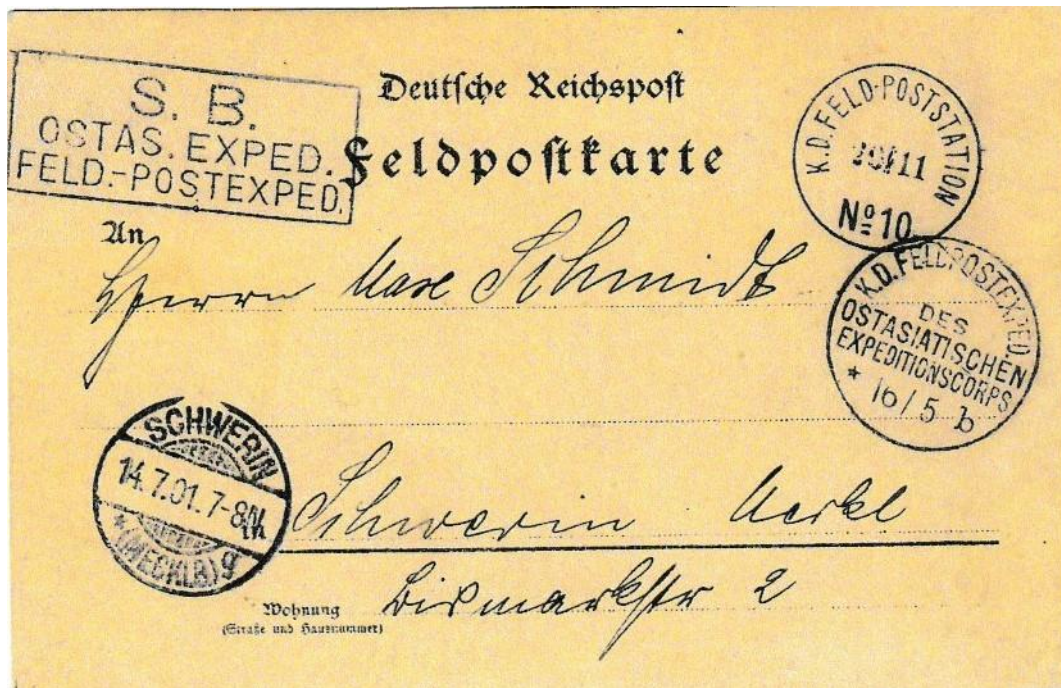 S. B.
OSTAS. EXPED.
FELD.-POSTEXPED.
Deutſche Reichspoſt
Feldpoſtkarte
K.D. FELD-POSTSTATION
11
Nº 10
An
Herrn Max Schmidt
K.D. FELDPOSTEXPED.
DES
OSTASIATISCHEN
EXPEDITIONSCORPS
* 16/5 b
SCHWERIN
14.7.01.7-8N.
* (MECKLB) g
Schwerin Meckl
Wohnung
(Straße und Hausnummer)
Bismarkstr 2